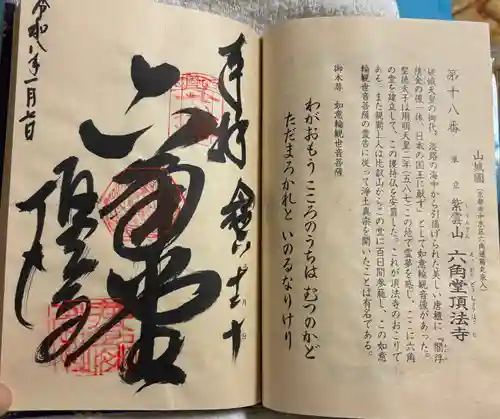 第十八番
山城國
単立
紫雲山
六角堂頂法寺
(京都市中京区六角通烏丸東入)
嵯峨天皇の御代、淡路の海中から引揚げられた美しい唐櫃に『閻浮
檀金の像一体、日本の国王に献ず』として如意輪観音像があった。
聖徳太子は用明天皇二年(五八七)この地で霊夢を略し、ここに六角
の堂を建立して、この護持仏を安置した。これが頂法寺のおこりで
ある。また親鸞上人は比叡山からこの堂に百日間参籠し、この如意
輪観世音菩薩の霊告に従って浄土真宗を開いたことは有名である。
御本尊 如意輪観世音菩薩
わがおもう こころのうちは むつのかど
ただまろかれと いのるなりけり
奉拝
第十八
六角堂
頂法寺
令和八年一月七日